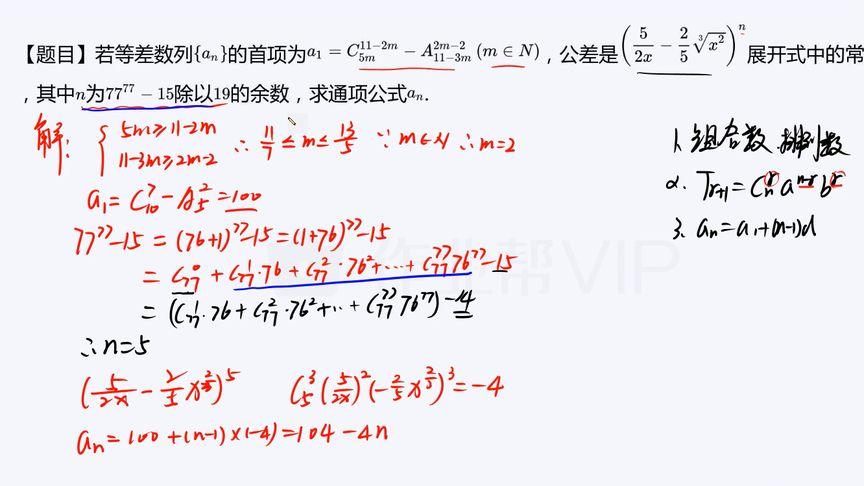 【题目】若等差数列{aₙ}的首项为a₁ = C₅ₘ^(11−2m) − A₁₁₋₃ₘ^(2m−2) (m ∈ N)，公差是(5/(2x) − (2/5)∛(x²))ⁿ展开式中的常
，其中n为77⁷⁷ − 15除以19的余数，求通项公式aₙ.
解: { 5m ≥ 11-2m
11-3m ≥ 2m-2 ∴ 11/7 ≤ m ≤ 13/5 ∵ m∈N ∴ m=2
a₁ = C₁₀⁷ - A₅² = 100
77⁷⁷-15 = (76+1)⁷⁷-15 = (1+76)⁷⁷-15
= C₇₇⁰ + C₇₇¹·76 + C₇₇²·76² + ··· + C₇₇⁷⁷76⁷⁷ -15
= (C₇₇¹·76 + C₇₇²·76² + ·· + C₇₇⁷⁷76⁷⁷) -14
∴ n=5
C₅³(5/2x)²
= -4
aₙ = 100 + (n-1)×(-4) = 104 - 4n
1、组合数、排列数
2. Tᵣ₊₁ = Cₙʳ aⁿ⁻ʳ bʳ
3、aₙ = a₁+(n-1)d
作业帮VIP